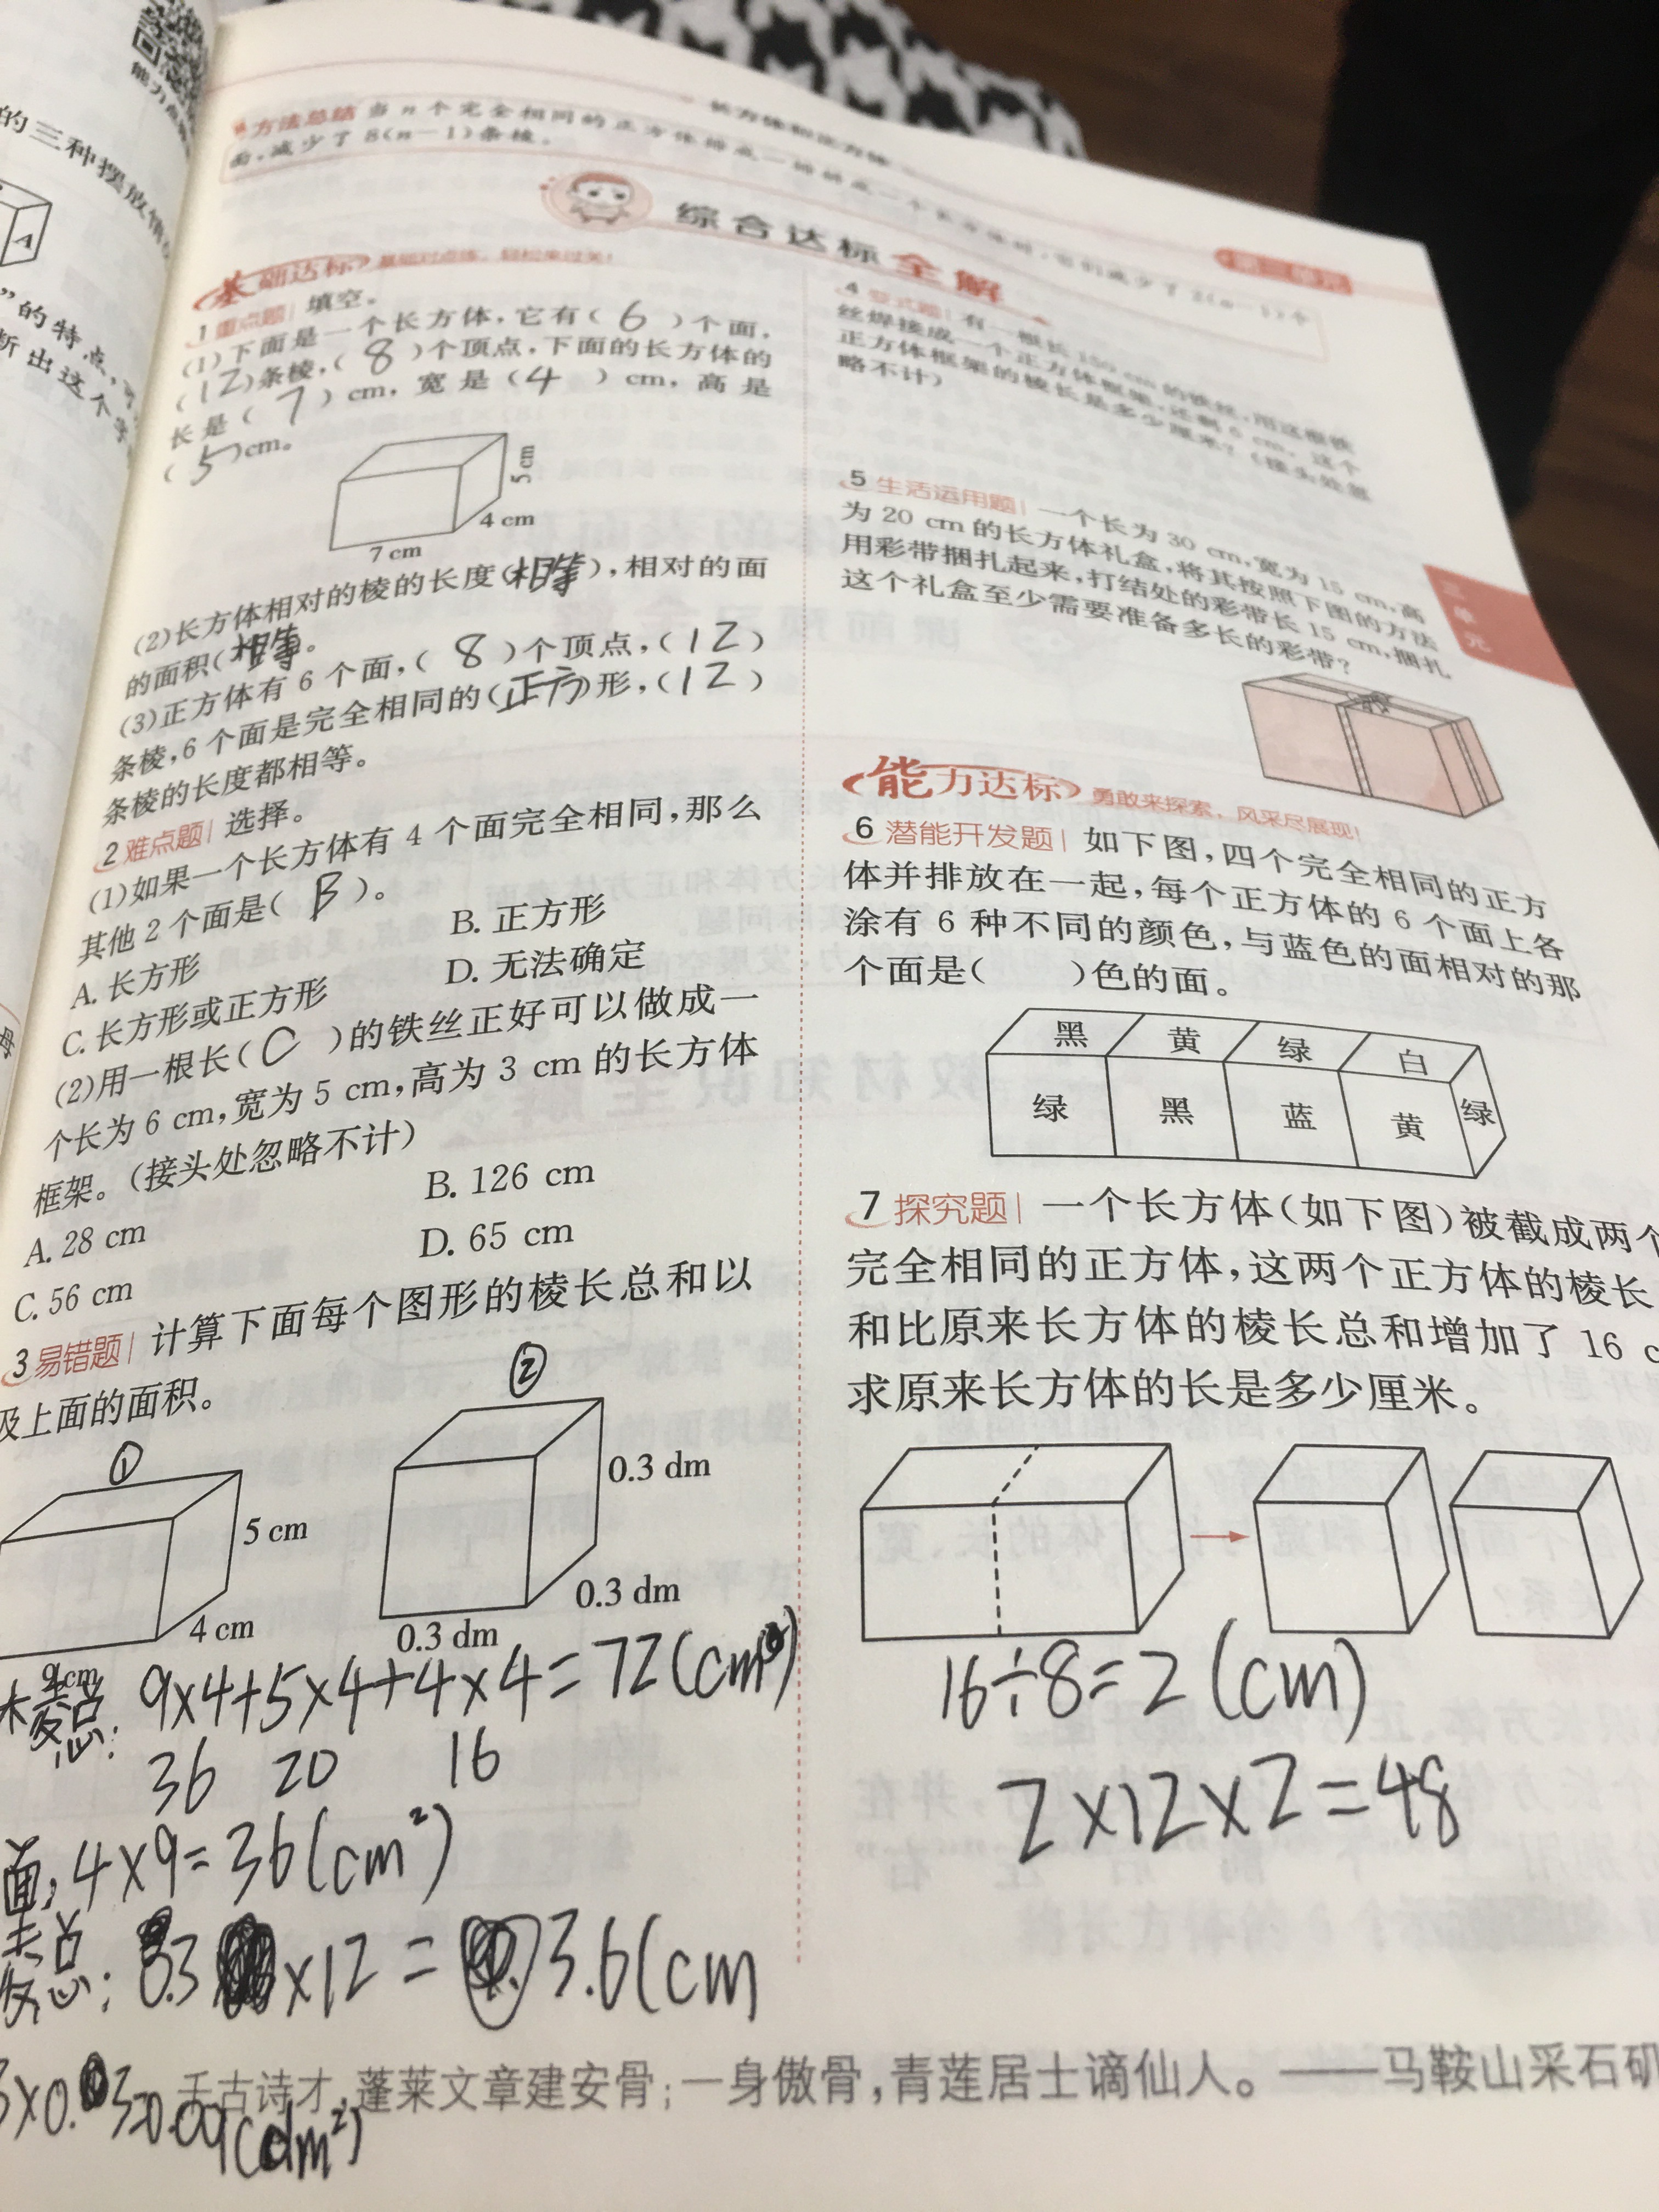 能力点
的三种摆放情
A
”的特点,可
断出这个字
长方体和正方体
第三单元
方法总结 当 n 个完全相同的正方体拼成一
面,减少了 8(n-1)条棱。
综合达标全解
基础达标 基础对点练,轻松来过关!
1 重点题 填空。
(1)下面是一个长方体,它有( 6 )个面,
(12)条棱,( 8 )个顶点,下面的长方体的
长是( 7 ) cm, 宽是( 4 ) cm, 高是
( 5 )cm。
5 cm
4 cm
7 cm
(2)长方体相对的棱的长度(相等),相对的面
的面积(相等。
(3)正方体有 6 个面,( 8 )个顶点,(12)
条棱,6 个面是完全相同的(正方)形,(12)
条棱的长度都相等。
2 难点题 选择。
(1)如果一个长方体有 4 个面完全相同,那么
其他 2 个面是( B )。
A. 长方形 B. 正方形
C. 长方形或正方形 D. 无法确定
(2)用一根长( C )的铁丝正好可以做成一
个长为 6 cm,宽为 5 cm,高为 3 cm 的长方体
框架。(接头处忽略不计)
A. 28 cm B. 126 cm
C. 56 cm D. 65 cm
3 易错题 计算下面每个图形的棱长总和以
及上面的面积。
①
②
5 cm
4 cm
9 cm
0.3 dm
0.3 dm
0.3 dm
棱总: 9×4+5×4+4×4=72(cm)
36 20 16
面: 4×9=36(cm²)
棱总: 0.3×12= 3.6(cm
3×0.3=0.09(dm²)
4 变式题 有一根长 150 cm 的铁丝,用这根铁
丝焊接成一个正方体框架,还剩 6 cm。这个
正方体框架的棱长是多少厘米?(接头处忽
略不计)
5 生活运用题 一个长为 30 cm,宽为 15 cm,高
为 20 cm 的长方体礼盒,将其按照下图的方法
用彩带捆扎起来,打结处的彩带长 15 cm,捆扎
这个礼盒至少需要准备多长的彩带?
三
单
元
能力达标 勇敢来探索,风采尽展现!
6 潜能开发题 如下图,四个完全相同的正方
体并排放在一起,每个正方体的 6 个面上各
涂有 6 种不同的颜色,与蓝色的面相对的那
个面是( )色的面。
黑 黄 绿 白
绿 黑 蓝 黄 绿
7 探究题 一个长方体(如下图)被截成两个
完全相同的正方体,这两个正方体的棱长
和比原来长方体的棱长总和增加了 16 c
求原来长方体的长是多少厘米。
16÷8=2(cm)
2×12×2=48
千古诗才,蓬莱文章建安骨;一身傲骨,青莲居士谪仙人。——马鞍山采石矶